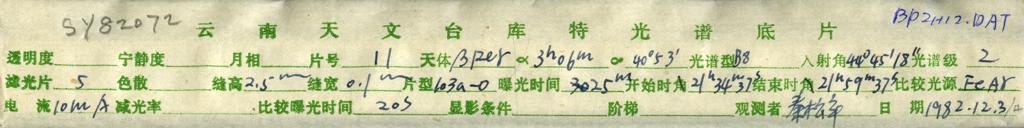 SY82072 云南天文台库特光谱底片 BP2H12.DAT
透明度 宁静度 月相 片号 11 天体 βper α 3h06m α 40°53' 光谱型 B8 入射角 44°45'18" 光谱级 2
滤光片 5 色散 缝高 2.5m 缝宽 0.1m 片型 103a-0 曝光时间 25m 开始时角 21h34m37s 结束时角 21h59m37s 比较光源 FeAr
电流 10m/A 减光率 比较曝光时间 20s 显影条件 阶梯 观测者 日期 1982.12.3/4